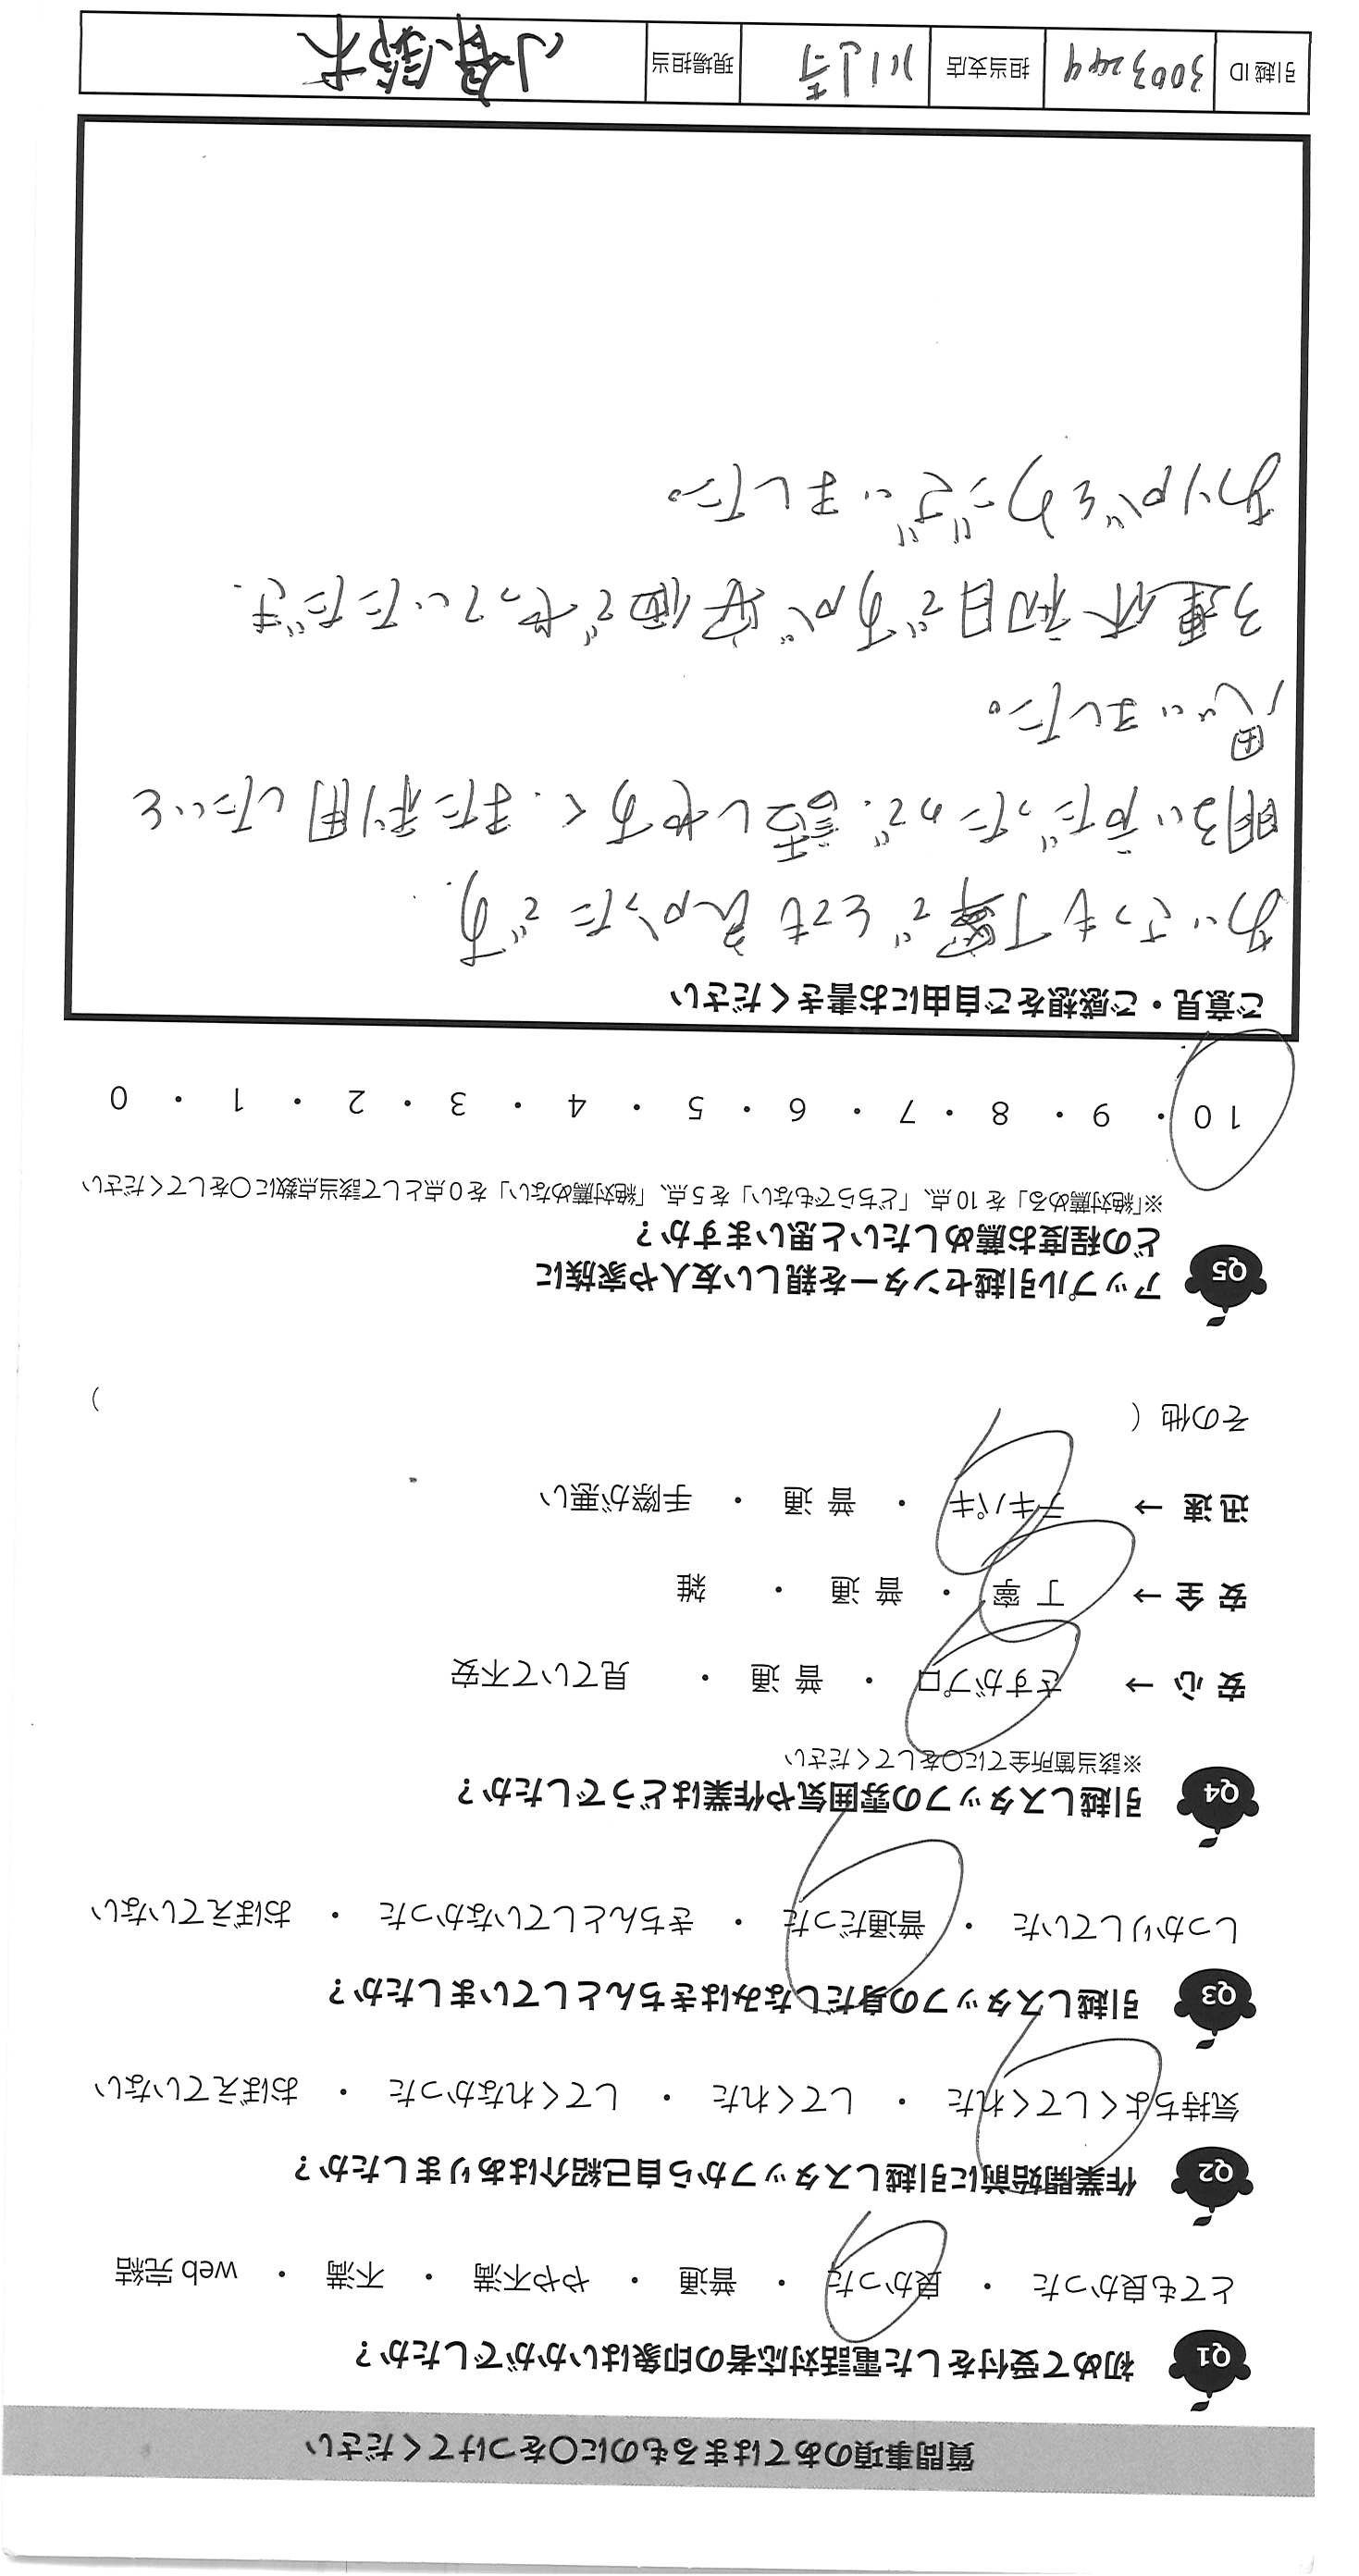 質問事項のあてはまるものに○をつけてください
Q1 初めて受付をした電話対応者の印象はいかがでしたか？
とても良かった ・ 良かった ・ 普通 ・ やや不満 ・ 不満 ・ web 完結
Q2 作業開始前に引越しスタッフから自己紹介はありましたか？
気持ちよくしてくれた ・ してくれた ・ してくれなかった ・ おぼえていない
Q3 引越しスタッフの身だしなみはきちんとしていましたか？
しっかりしていた ・ 普通だった ・ きちんとしていなかった ・ おぼえていない
Q4 引越しスタッフの雰囲気や作業はどうでしたか？
※該当箇所全てに○をしてください
安 心 → さすがプロ ・ 普 通 ・ 見ていて不安
安 全 → 丁 寧 ・ 普 通 ・ 雑
迅 速 → テキパキ ・ 普 通 ・ 手際が悪い
その他（ ）
Q5 アップル引越センターを親しい友人や家族に
どの程度お薦めしたいと思いますか？
※「絶対薦める」を 10 点、「どちらでもない」を 5 点、「絶対薦めない」を 0 点として該当点数に○をしてください
10 ・ 9 ・ 8 ・ 7 ・ 6 ・ 5 ・ 4 ・ 3 ・ 2 ・ 1 ・ 0
ご意見・ご感想をご自由にお書きください
あいさつも丁寧でとても良かったです。
明るい方だったので、話しやすく、また利用したいと
思いました。
3連休初日ですが安値でやっていただき、
ありがとうございました。
引越 ID 3003244 担当支店 川崎 現場担当 鈴木